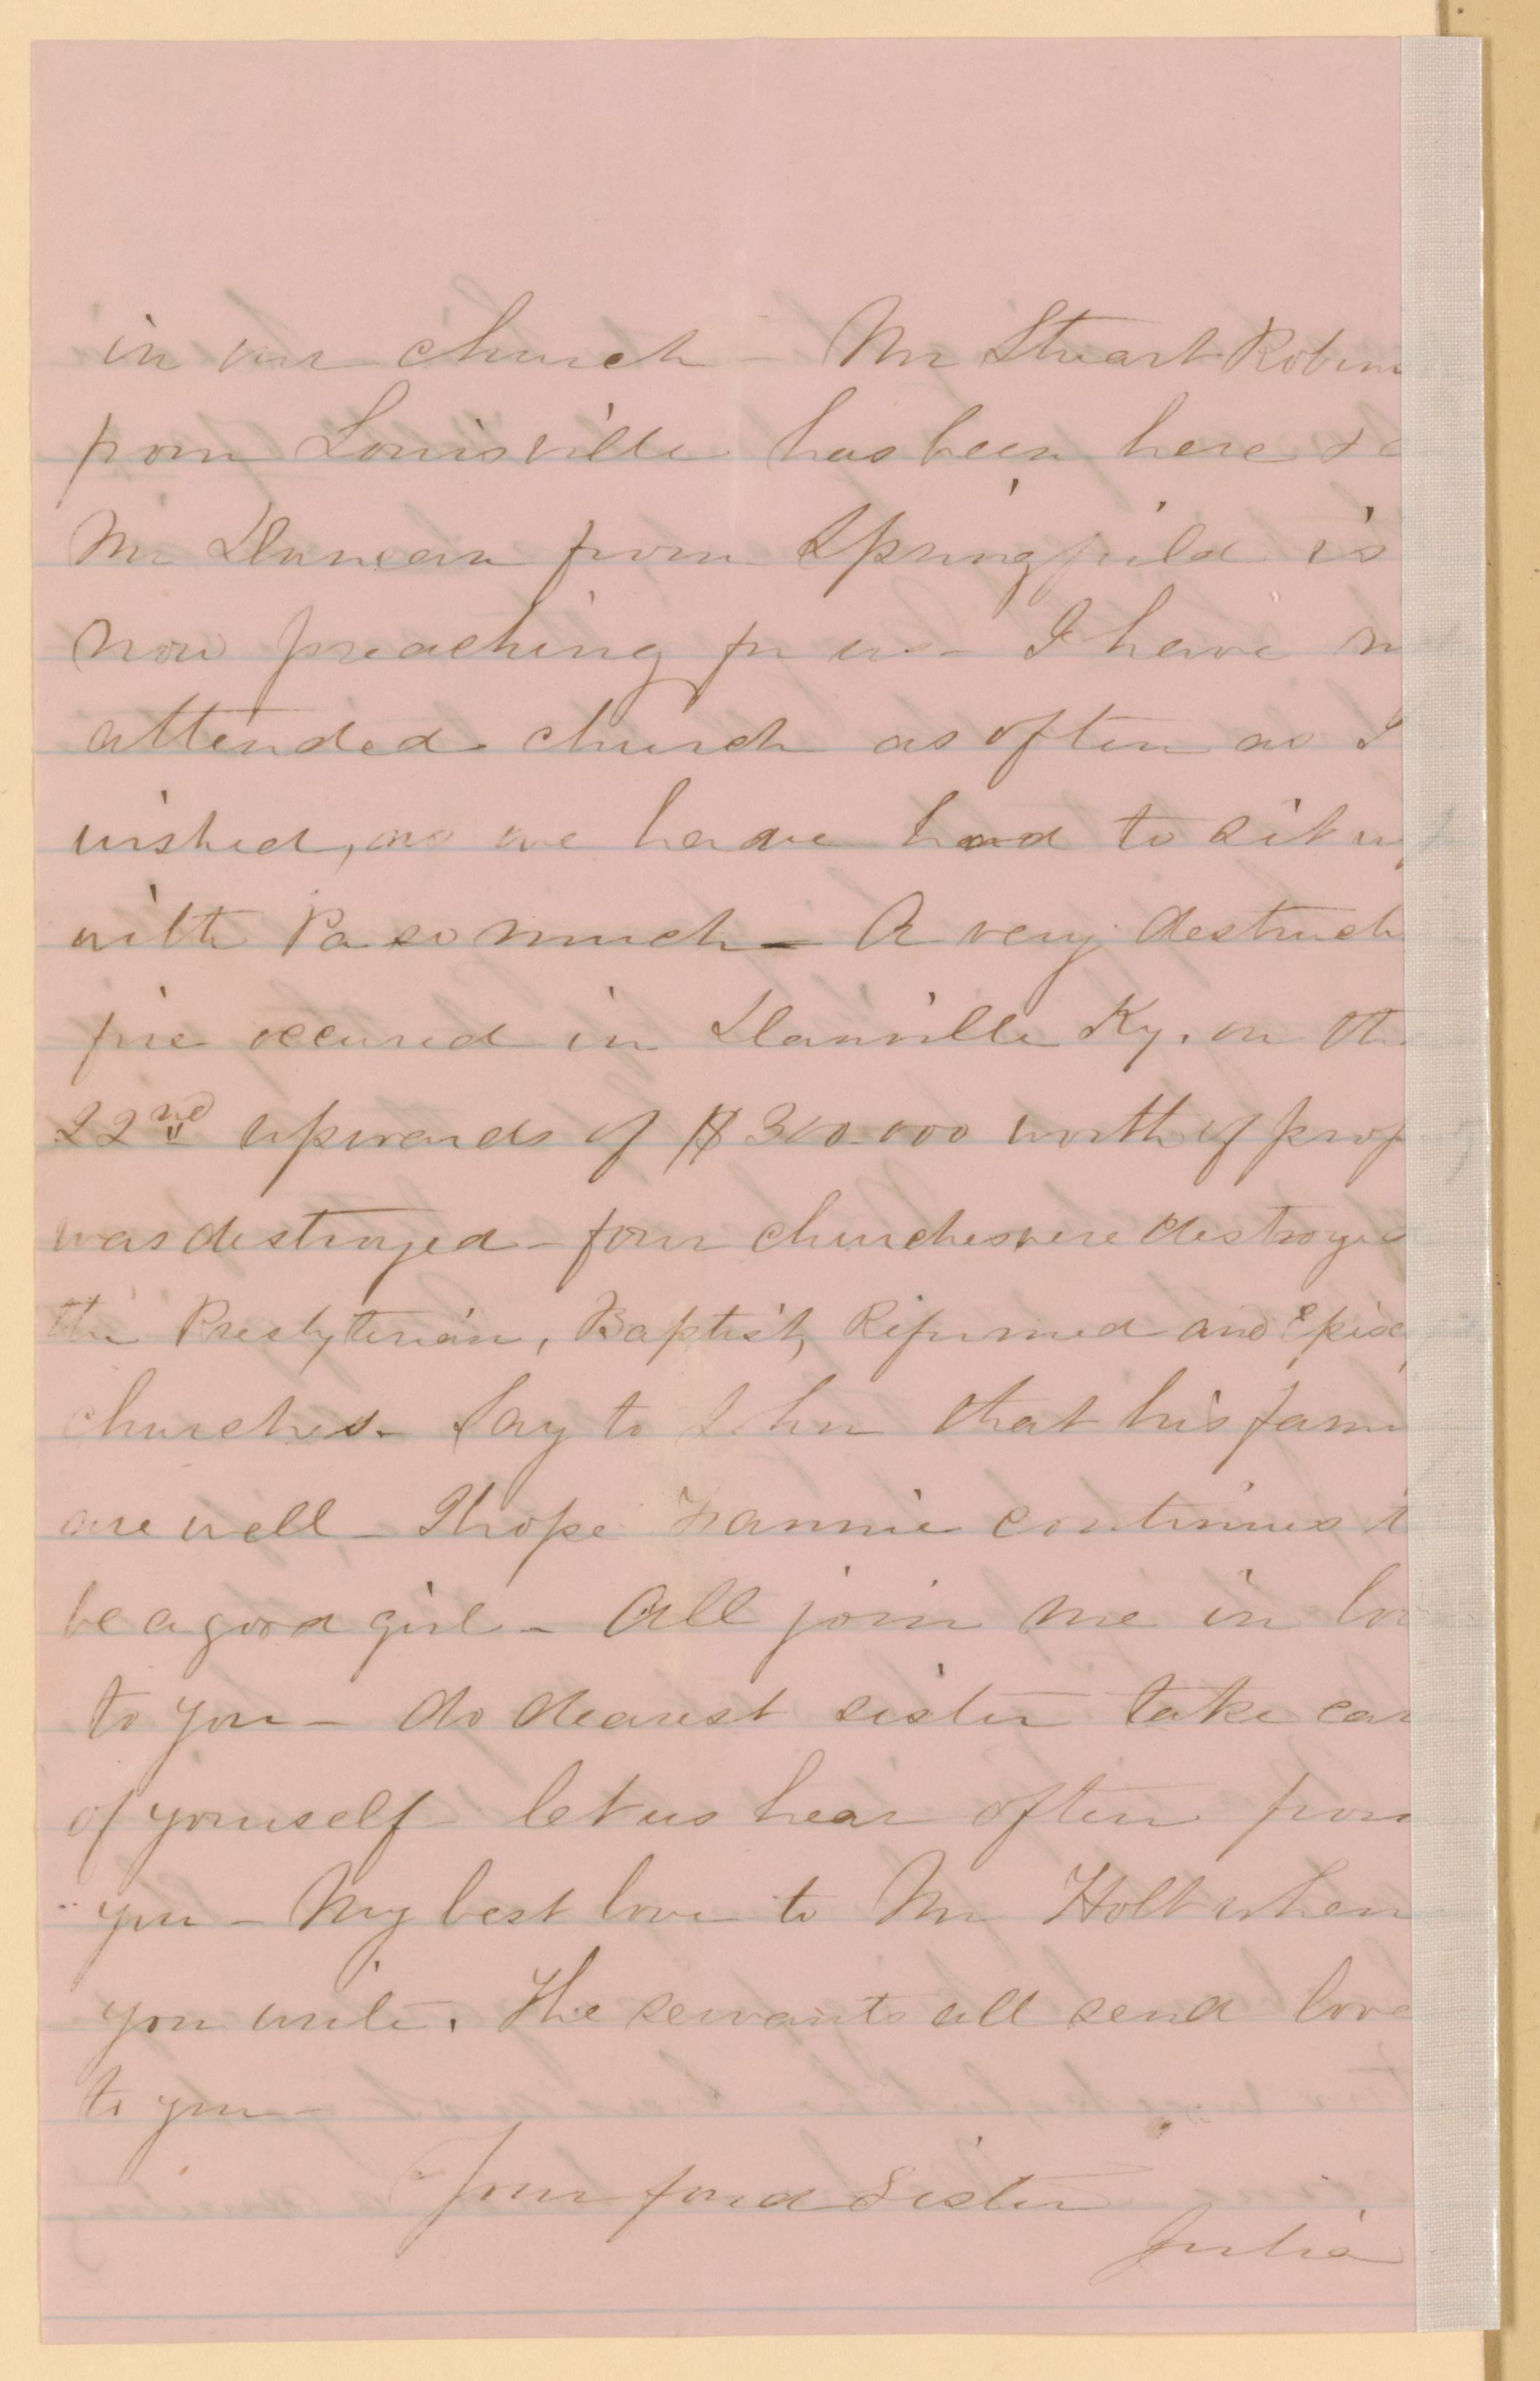 in our church – Mr Stuart Robin
from Louisville has been here &
Mr Duncan from Springfield is
now preaching for us – I have n
attended church as often as I
wished, as we have had to sit up
with Pa so much – A very destruct
fire occured in Danville Ky. on the
22nd upwards of $300.000 worth of prop
was destroyed – four churches were destroyed
the Presbyterian, Baptist, Reformed and Episc
churches – Say to John that his fami
are well – I hope Fannie continues t
be a good girl – All join me in lov
to you – do dearest sister take car
of yourself let us hear often from
you – My best love to Mr Holt when
you write. The servants all send love
to you –
Your fond sister
Julia